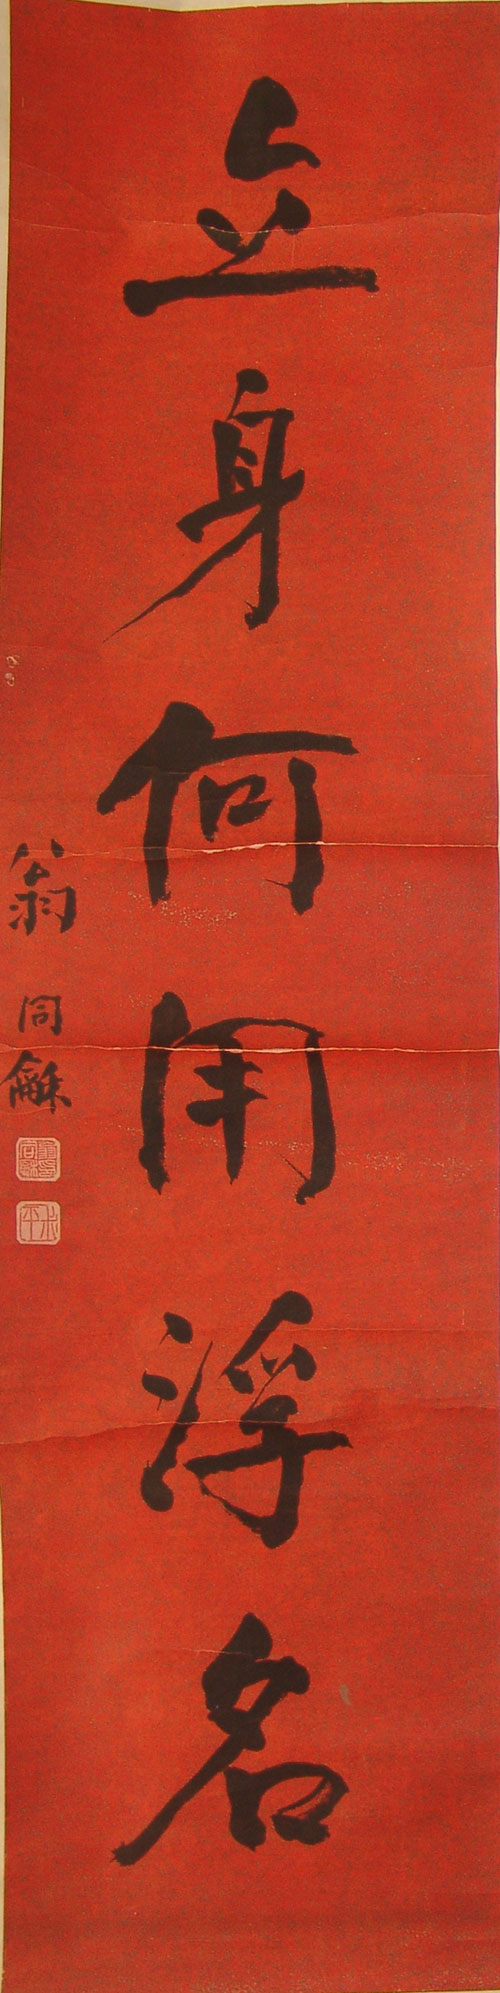 立身何用浮名
翁同龢